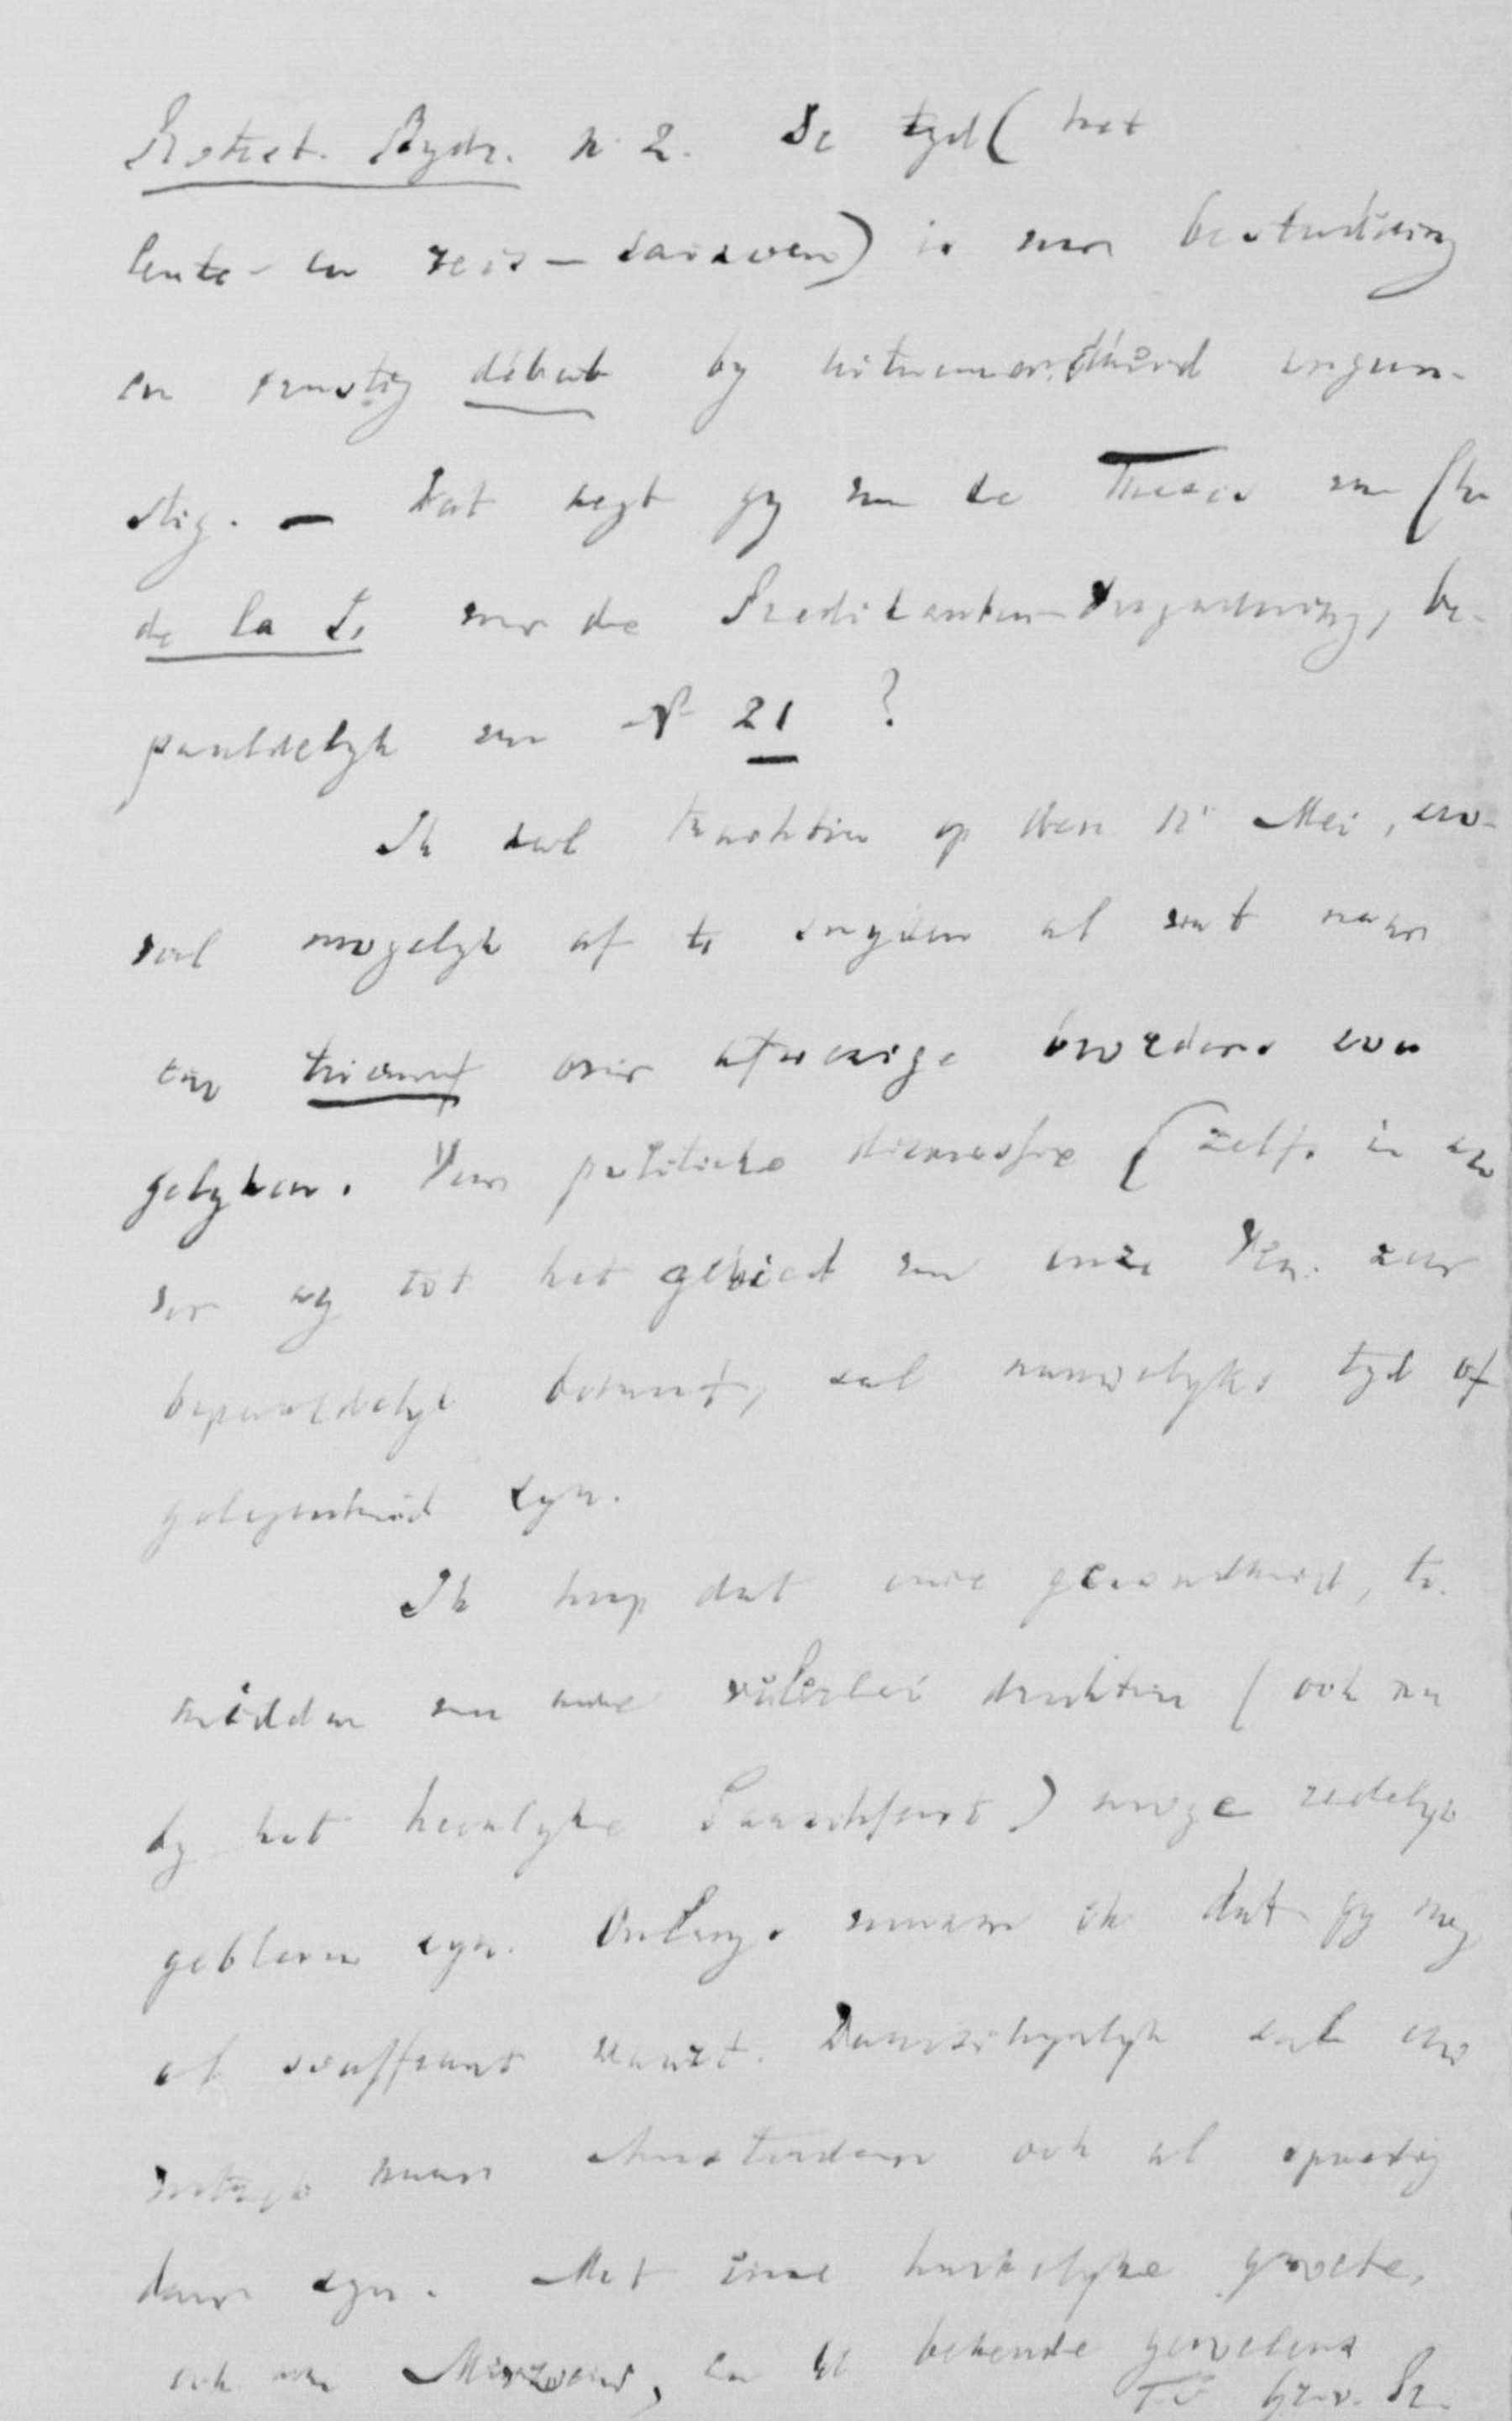 Bydr. n. 2. De tyd (het
lente- en reis-saisoen) is voor bestudering
en ernstig débat by uitnemendheid ongun-
stig. — Wat zegt gy van de Thesis van Ch.
de la S. voor de Predikanten-Vergadering, be-
paaldelyk van N° 21 ?
Ik zal trachten op den 12 Mei, zoo-
veel mogelyk af te snyden al wat naar
een triomf over afwezige broeders zou
gelyken. Voor politieke discussie (zelfs in zoo
ver zy tot het gebied van onze Ver. zeer
bepaaldelyk behoort, zal nauwelyks tyd of
gelegenheid zyn.
Ik hoop dat uwe gezondheid, te
midden van uwe velerlei drukten (ook nu
by het heerlyke Paaschfeest) moge redelyk
gebleven zyn. Onlangs vernam ik dat gy nog
al souffrant waart. Waarschynlyk zal uw
vertrek naar Amsterdam ook al spoedig
daar zyn. Met inne hartelyke groete,
ook aan Mevrouw, en de bekende gevoelens
T.T. Gr. v. Pr.